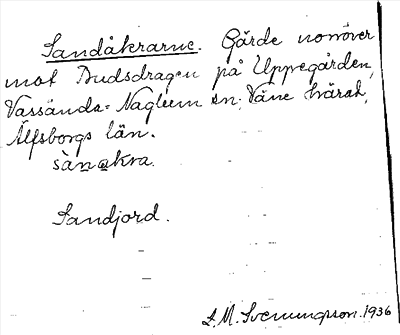 Sandåkrarne. Gärde norröver
mot Budsdragen på Uppegården,
Vassända-Naglum sn, Väne härad,
Älfsborgs län.
sànakra
Sandjord.
L. M. Svenungsson. 1936